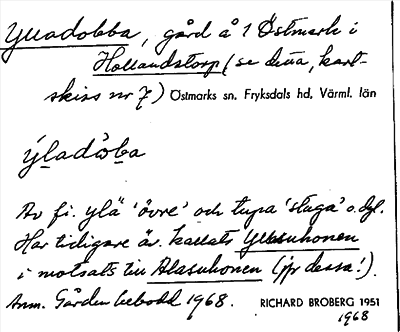 Ylladobba, gård å 1 Östmark i
Hollandstorp (se detta, kart-
skiss nr 7) Östmarks sn. Fryksdals hd. Värml. län
ýladòba
Av fi. ylä 'övre' och tupa 'stuga' o.dyl.
Har tidigare äv. kallats Yllsuhonen
i motsats till Alasuhonen (jfr dessa!).
Anm. Gården bebodd 1968. RICHARD BROBERG 1951
1968